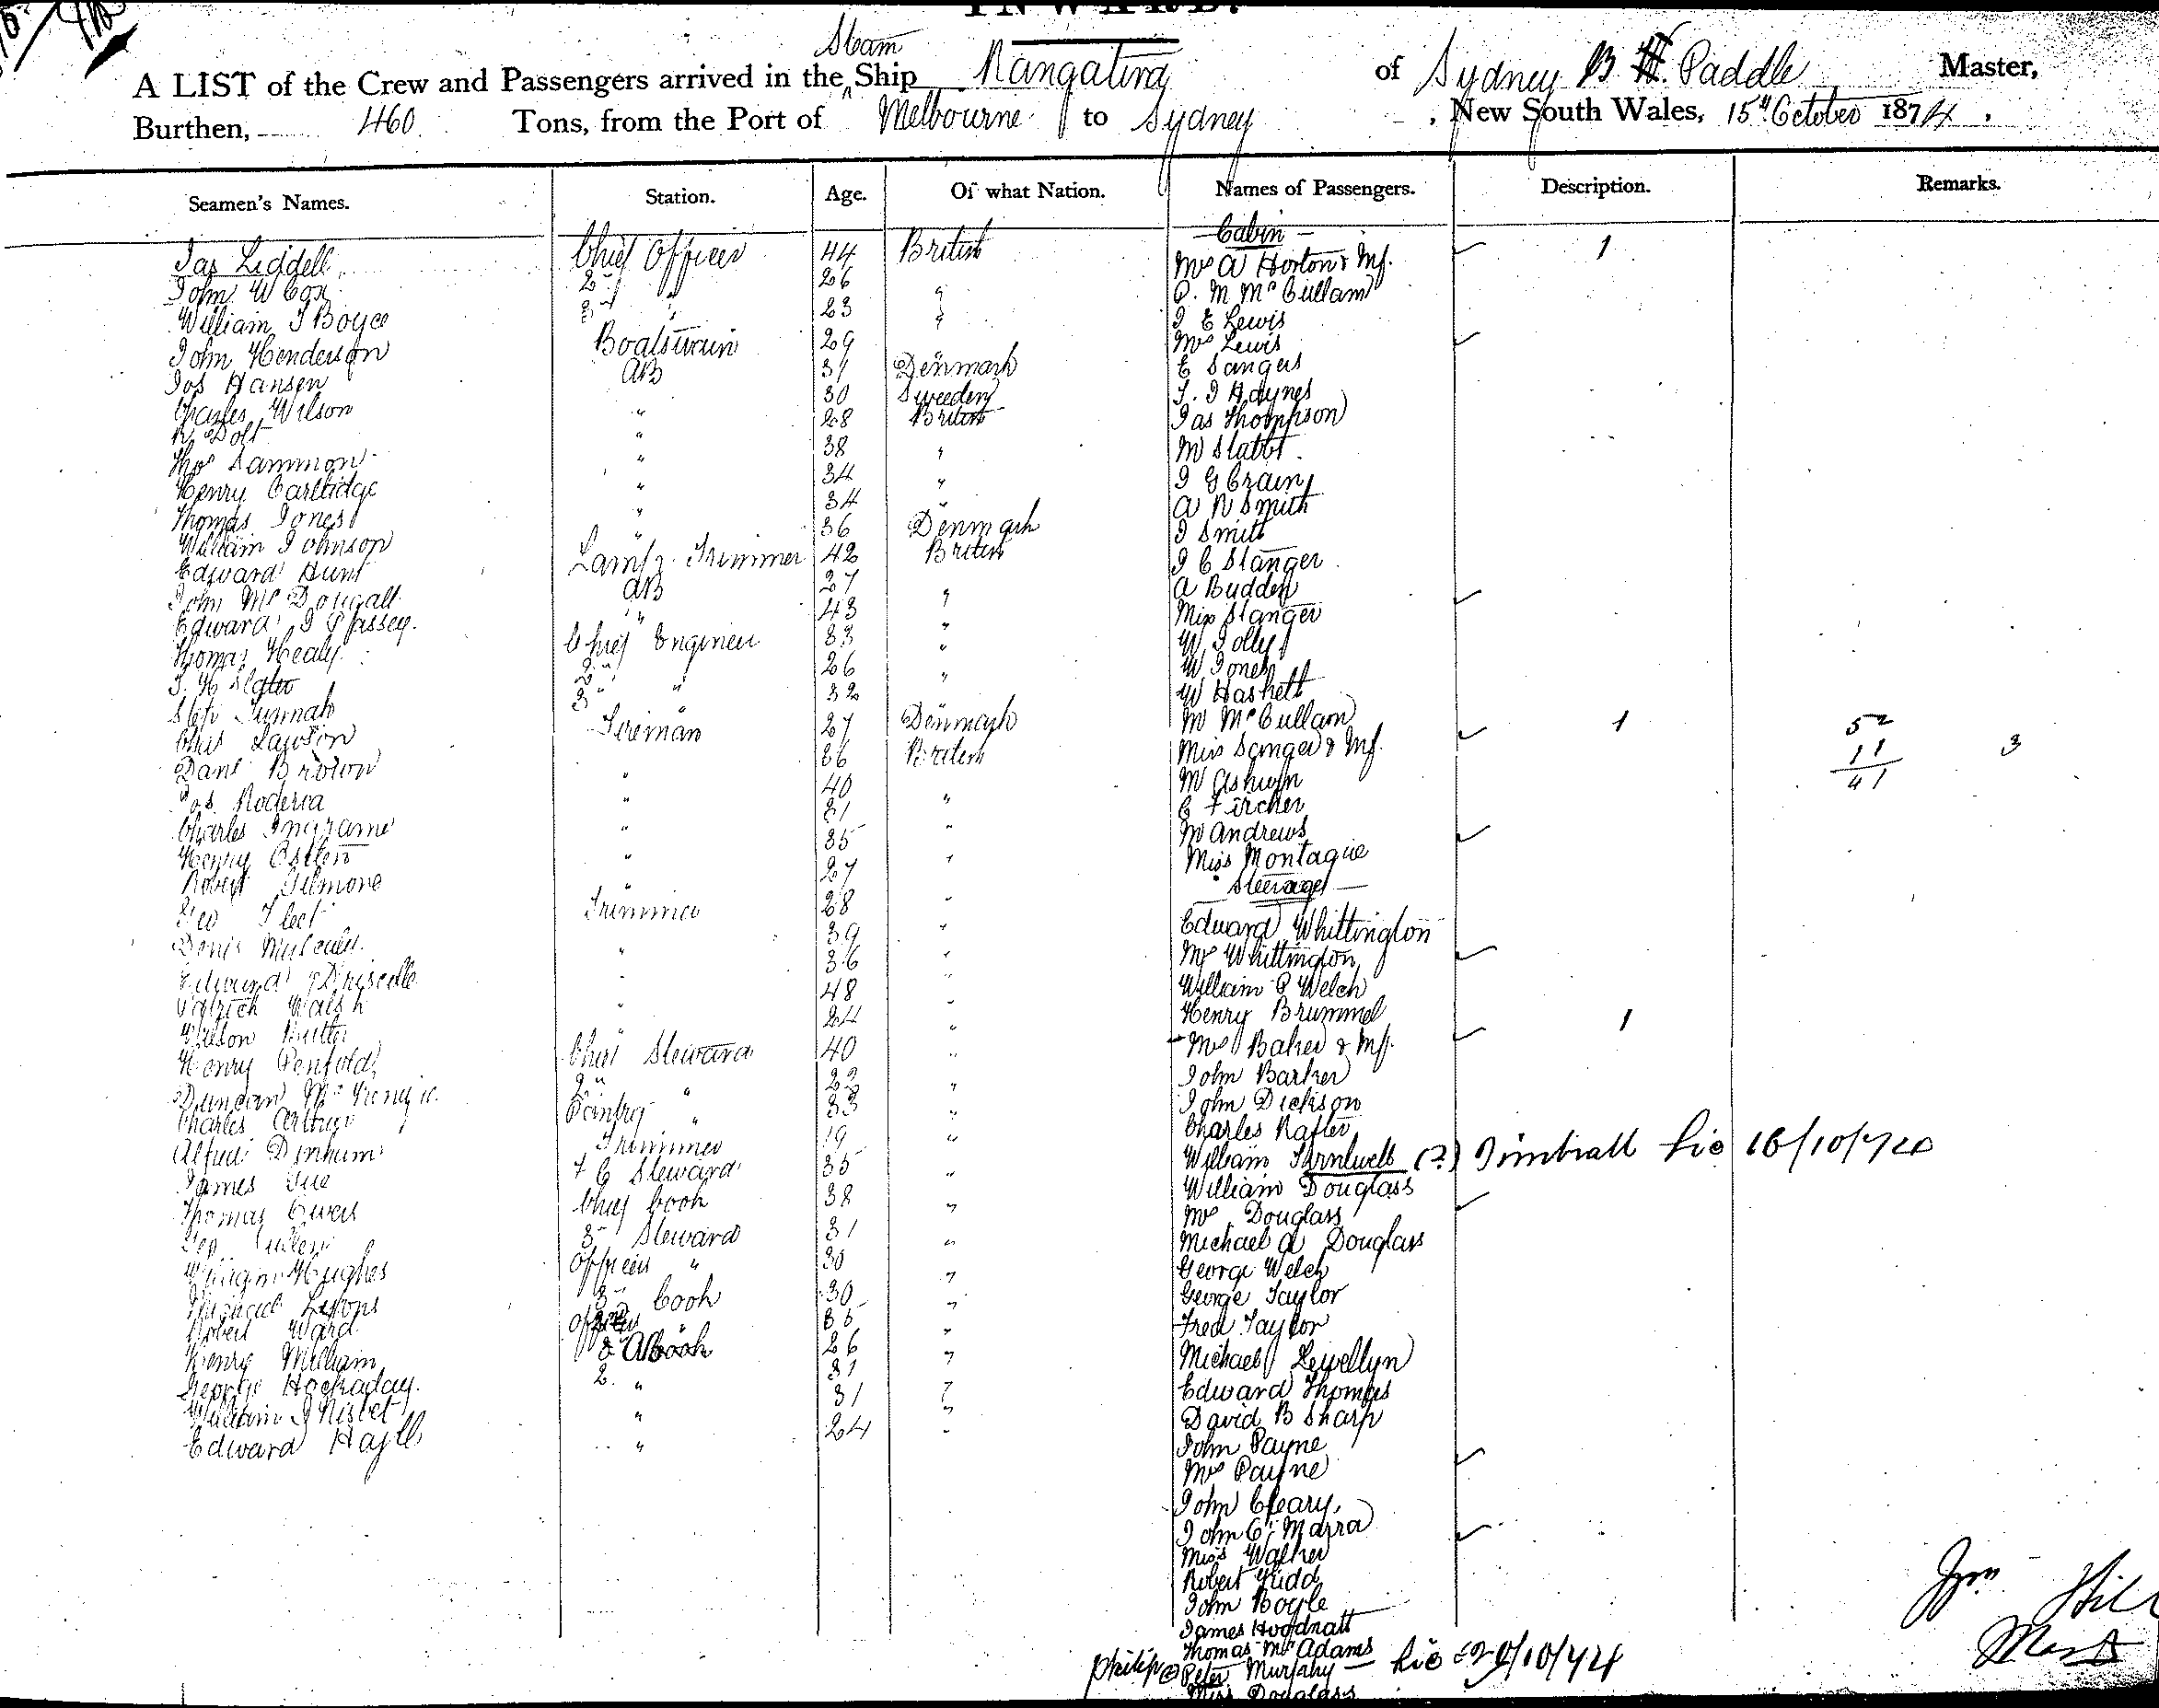 INWARD.
Steam
A LIST of the Crew and Passengers arrived in the Ship Rangatira of Sydney B H. Paddle Master,
Burthen, 460 Tons, from the Port of Melbourne to Sydney, New South Wales, 15th October 1874,
Seamen's Names. Station. Age. Of what Nation. Names of Passengers. Description. Remarks.
Jas Liddell Chief Officer 44 British
John W Cox 2nd " 26 "
William J Boyce 3rd " 23 "
John Henderson Boatswain 29
Jos Hansen AB 31 Denmark
Charles Wilson " 30 Sweeden
R Dolt " 28 British
Thos Sammon " 38 "
Henry Cartlidge " 34 "
Thomas Jones " 34 "
William Johnson " 36 Denmark
Edward Hunt Lamp Trimmer 42 British
John McDougall AB 27 "
Edward J Passey. " 43 "
Thomas Healy Chief Engineer 33 "
J. H Slater 2nd " 26 "
Step Tunnah 3 " " 32
Chris Lawson Fireman 27 Denmark
Danl Brown " 36 British
Jos Roderia " 40 "
Charles Ingrame " 31 "
Henry Osllen " 35 "
Robert Gilmore " 27 "
Geo Fleet Trimmer 28 "
Denis " 39 "
Edmund Driscolle " 36 "
Patrick Walsh " 48 "
Wilson Butler " 24 "
Henry Penfold Chief Steward 40 "
Duncan 2nd " 22 "
Charles Arthur Pantry " 33 "
Alfred Denham Trimmer 19 "
James Tue F C Steward 35 "
Thomas Owen Chief Cook 38 "
Geo 3rd Steward 31 "
William Hughes Officers " 30 "
Michael Lyons 3rd Cook 30 "
Robert Ward Officers " 35 "
Henry Milham 26 "
George Hockaday. 2. " 31 "
William J Nisbet " 31 "
Edward Hayll " 24 "
Cabin
Mrs A Horton & Inf. 1
C. M McCullam
J E Lewis
Mrs Lewis
E Sangers
T. J Haynes
Jas Thompson
M Slatt
J G Crain
A R Smith
J Smith
J C Stanger
A Budden
Miss Stanger
W Jolly
W Jones
W Haskett
M McCullam
Miss Sanger & Inf. 1
M Ashwin
C Fircher
M Andrews
Miss Montague
Steerage
Edward Whittington
Mrs Whittington
William P Welch
Henry Brummel
Mrs Baker & Inf. 1
John Barker
John Dickson
Charles Rafter
William Turnlwell (?) Timbrall Lic 16/10/74
William Douglass
Mrs Douglass
Michael A Douglass
George Welch
George Taylor
Fred Taylor
Michael Lewellyn
Edward Thomas
David B Sharp
John Payne
Mrs Payne
John Cleary
John C. Marra
Miss Walker
Robert Kidd
John Boyle
James Hoodnatt
Thomas McAdams
Philip @ Peter Murphy — Lic 29/10/74
Miss Douglass
52
11
41
3